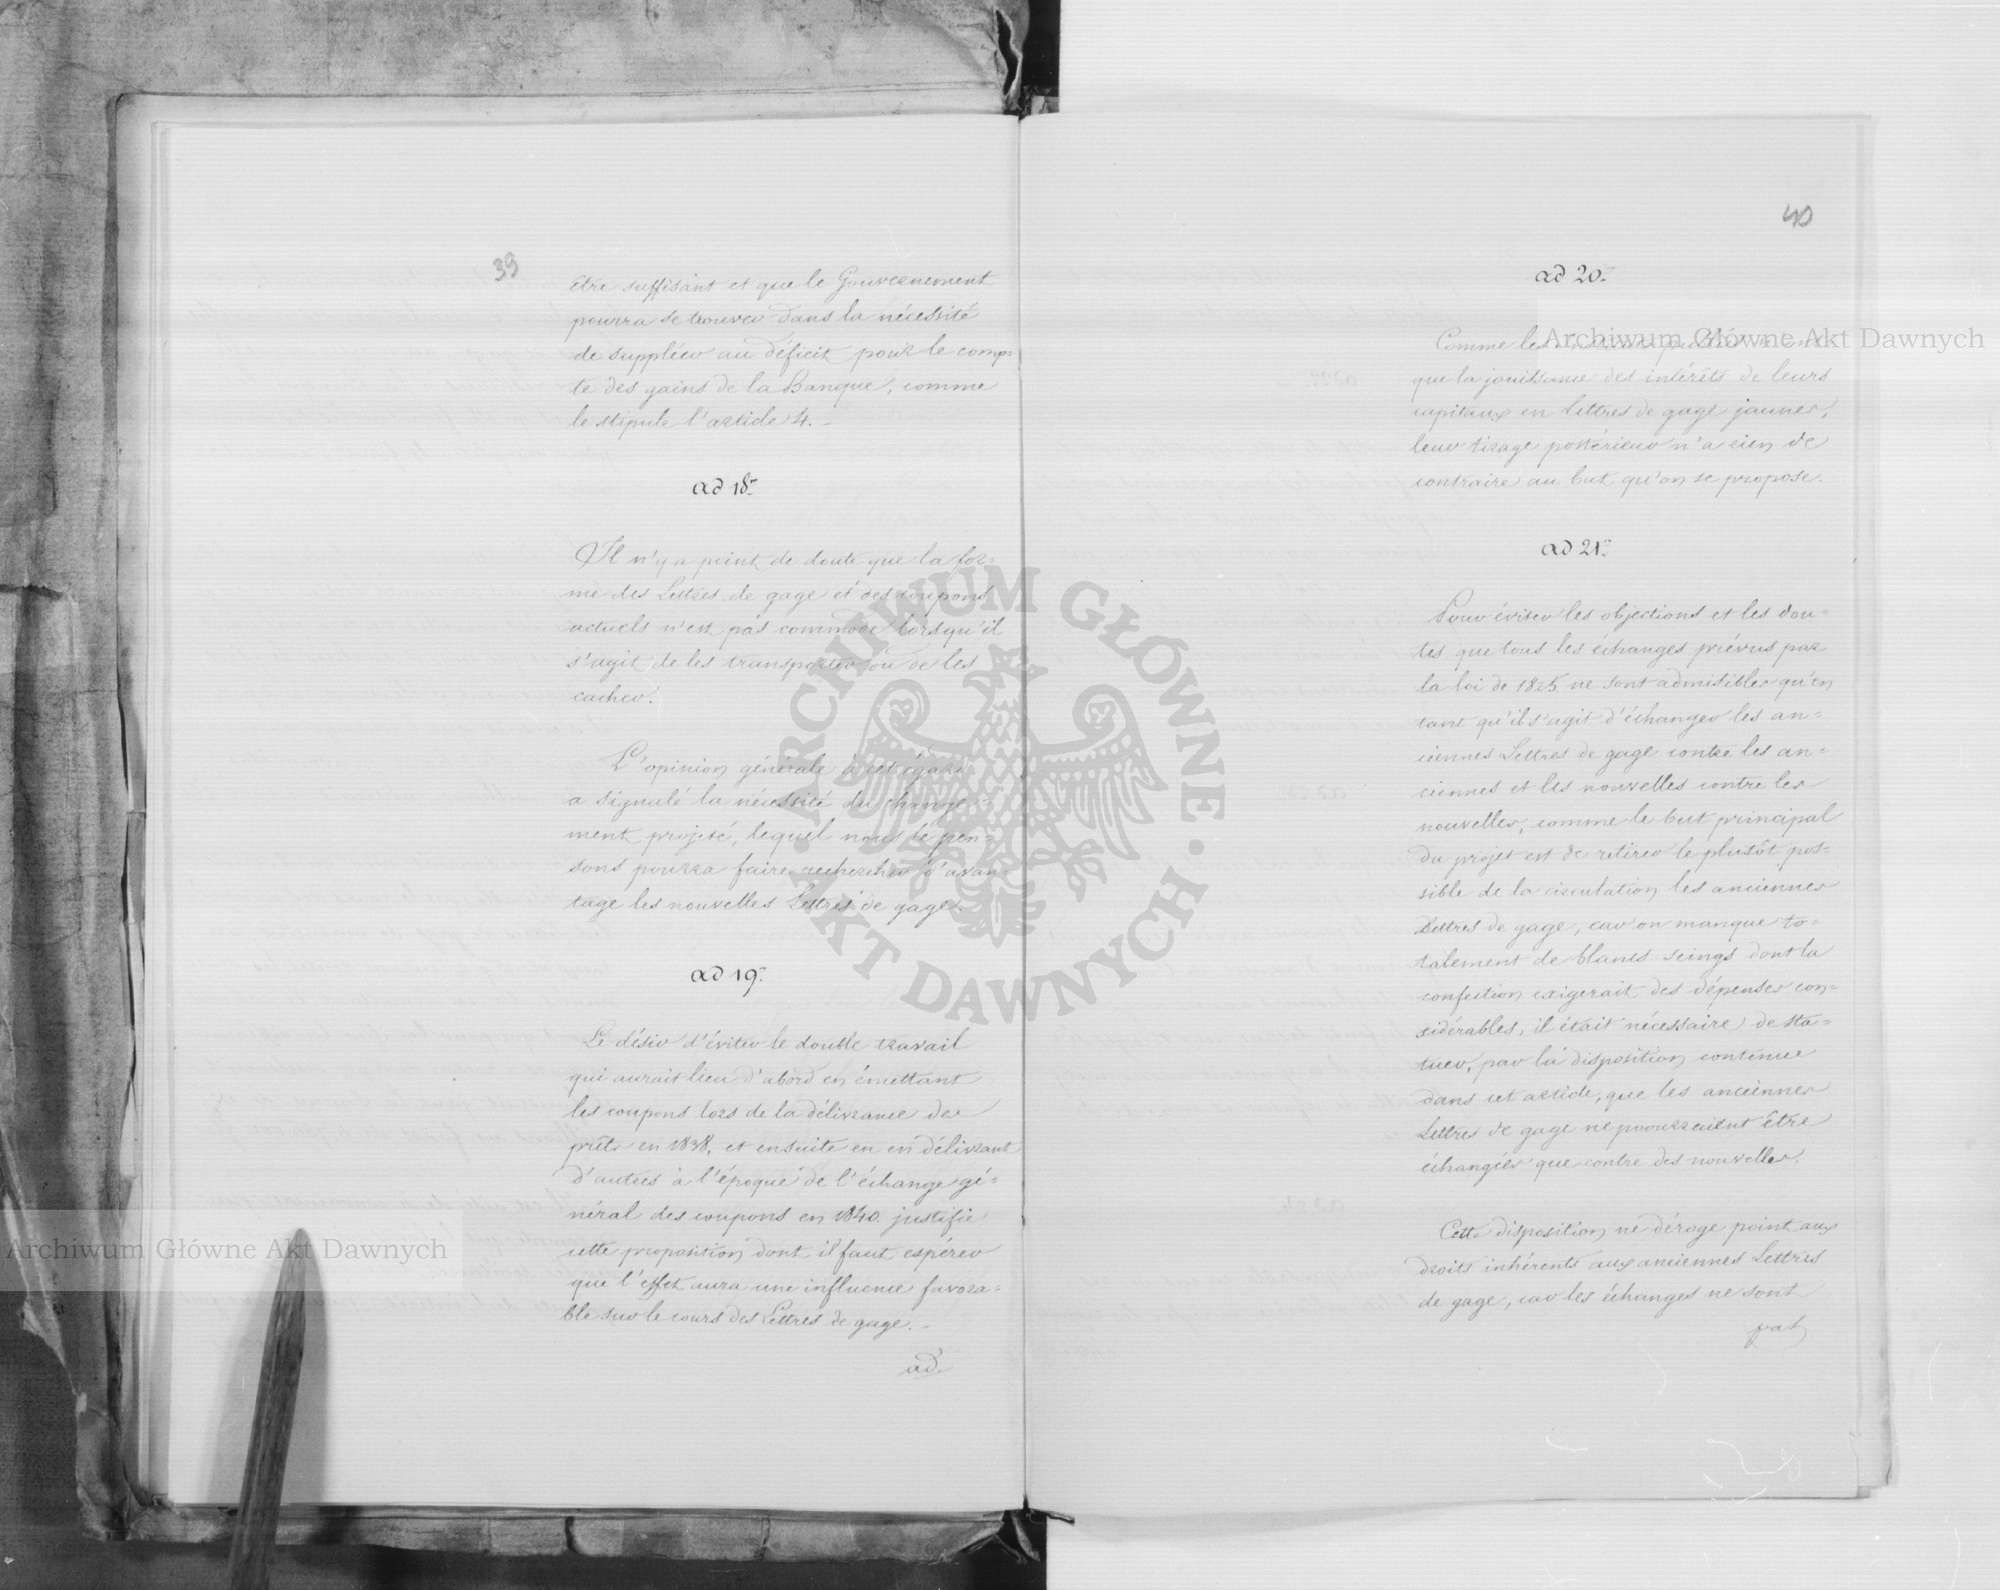 39
être suffisant et que le Gouvernement
pourra se trouver dans la nécessité
de suppléer au déficit pour le comp=
te des gains de la Banque, comme
le stipule l'article 4. -
ad 18.
Il n'y a point de doute que la for=
me des Lettres de gage et des coupons
actuels n'est pas commode lorsqu'il
s'agit de les transporter ou de les
cacher.
L'opinion générale à cet égard
a signalé la nécessité du change=
ment projeté, lequel nous le pen=
sons pourra faire rechercher d'avan=
tage les nouvelles Lettres de gage.
ad 19.
Le désir d'éviter le double travail
qui aurait lieu d'abord en émettant
les coupons lors de la délivrance des
prêts en 1838, et ensuite en en délivrant
d'autres à l'époque de l'échange gé=
néral des coupons en 1840. justifie
cette proposition dont il faut espérer
que l'effet aura une influence favora=
ble sur le cours des Lettres de gage. -
ad.
40
ad 20.
Comme les
que la jouissance des intérêts de leurs
capitaux en Lettres de gage jaunes,
leur tirage postérieur n'a rien de
contraire au but qu'on se propose.
ad 21.
Pour éviter les objections et les dou=
tes que tous les échanges prévus par
la loi de 1825 ne sont admisibles qu'en
tant qu'il s'agit d'échanger les an=
ciennes Lettres de gage contre les an=
ciennes et les nouvelles contre les
nouvelles, comme le but principal
du projet est de retirer le plustôt pos=
sible de la circulation les anciennes
Lettres de gage, car on manque to=
talement de blancs-seings dont la
confection exigerait des dépenses con=
sidérables, il était nécessaire de sta=
tuer, par la disposition contenue
dans cet article, que les anciennes
Lettres de gage ne pourraient être
échangées que contre des nouvelles.
Cette disposition ne déroge point aux
droits inhérents aux anciennes Lettres
de gage, car les échanges ne sont
pas
Archiwum Główne Akt Dawnych
Archiwum Główne Akt Dawnych
ARCHIWUM GŁÓWNE · AKT DAWNYCH ·